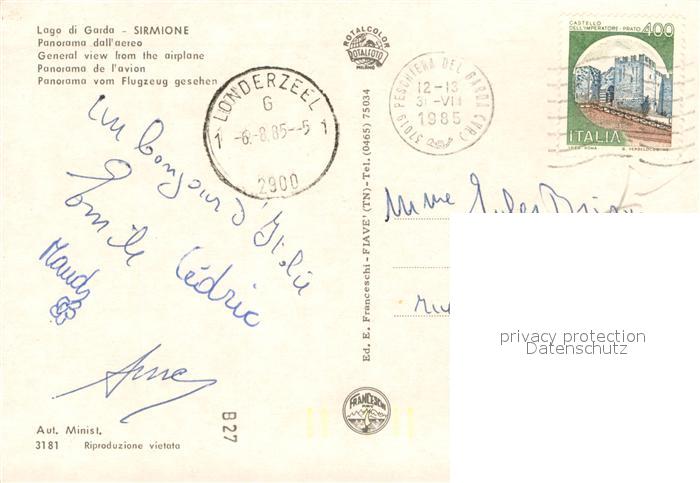 Lago di Garda - SIRMIONE
Panorama dall'aereo
General view from the airplane
Panorama de l'avion
Panorama vom Flugzeug gesehen
ROTALCOLOR
ROTALFOTO
MILANO
LONDERZEEL
G
1 -6.-8.85--5 1
2900
37019 PESCHIERA DEL GARDA (VR)
12-13
31-VII
1985
CASTELLO
DELL'IMPERATORE - PRATO 400
ITALIA
un bonjour d'Italie
Emile Cédric
Maud
Anne
Mme Jules
rue
Ed. E. Franceschi - FIAVE' (TN) - Tel. (0465) 75034
privacy protection
Datenschutz
FRANCESCHI
B27
Aut. Minist.
3181 Riproduzione vietata